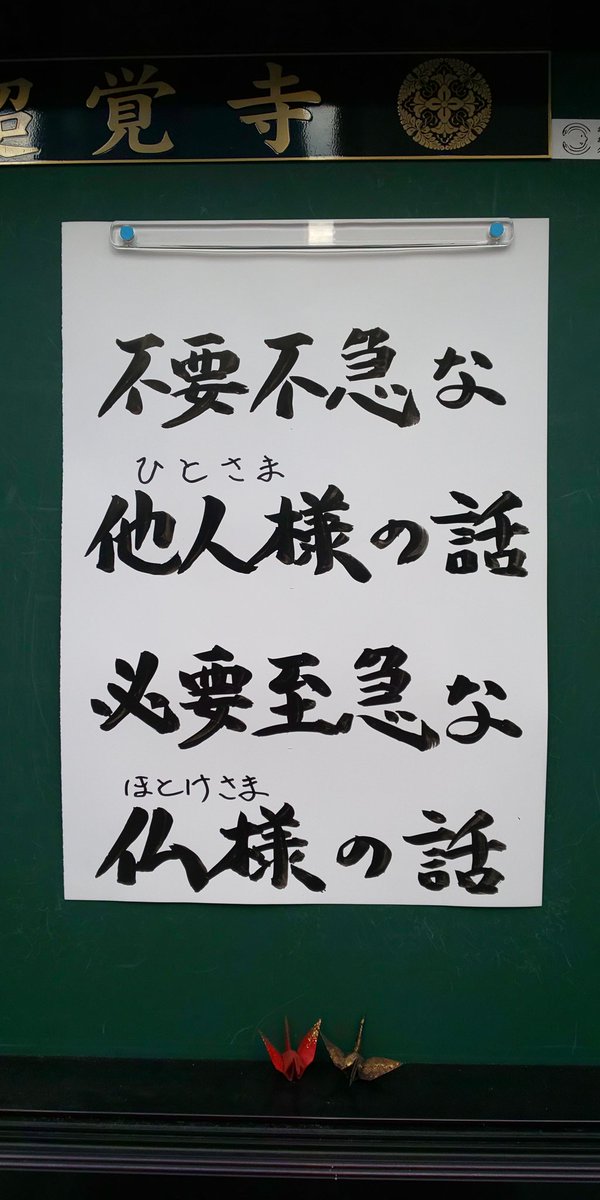 超覚寺
不要不急な
ひとさま
他人様の話
必要至急な
ほとけさま
仏様の話